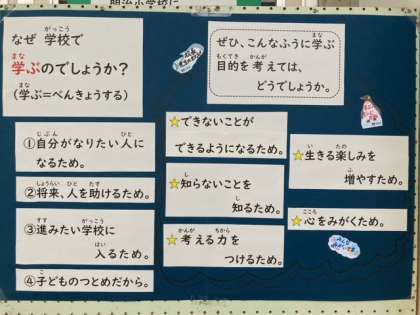 明治小学校に
なぜ 学校で
学ぶのでしょうか？
(学ぶ=べんきょうする)
①自分がなりたい人に
なるため。
②将来、人を助けるため。
③進みたい学校に
入るため。
④子どものつとめだから。
ぜひ、こんなふうに学ぶ
目的を考えては、
どうでしょうか。
☆できないことが
できるようになるため。
☆知らないことを
知るため。
☆考える力を
つけるため。
☆生きる楽しみを
増やすため。
☆心をみがくため。